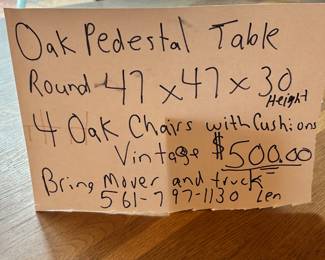 Oak Pedestal Table
Round 47 x 47 x 30
Height
4 Oak Chairs with Cushions
Vintage $500.00
Bring Mover and truck
561-797-1130 Len